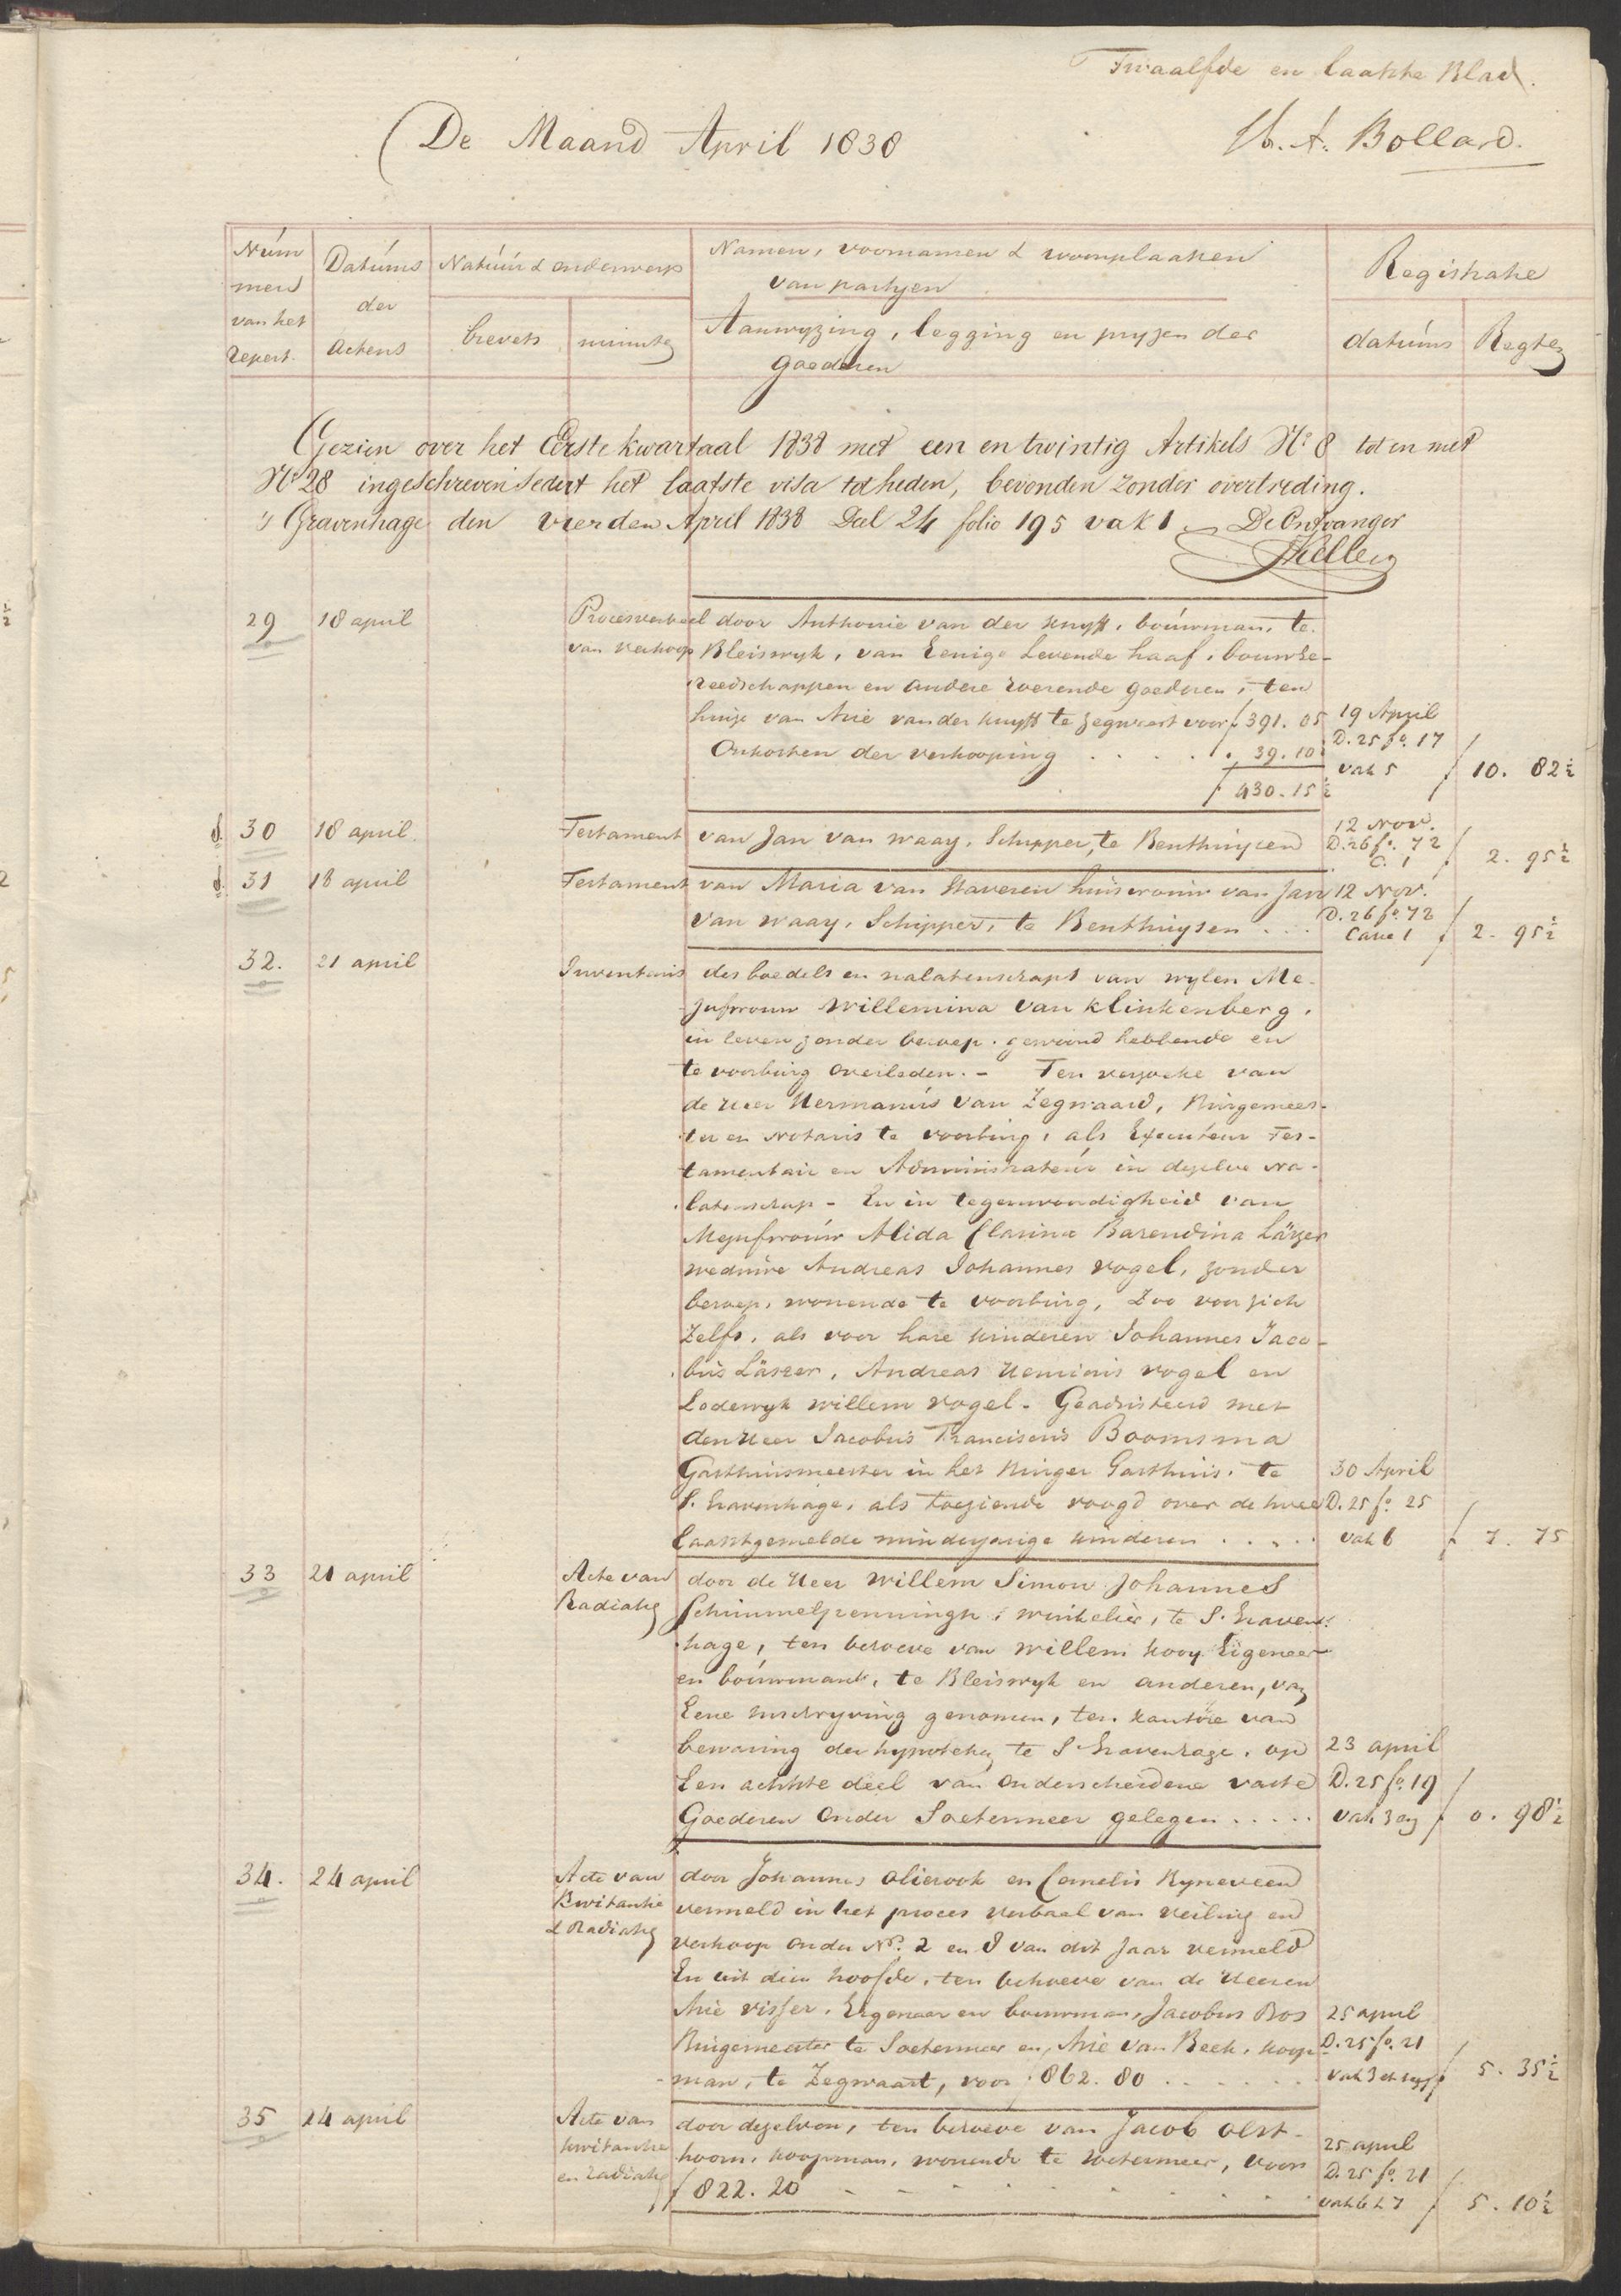 Twaalfde en laatste Blad.
De Maand April 1838
Bollard.
Núm
mers
van het
Repert.
Datúms
der
Actens
Natúúr & onderwerp
brevets
minuten
Namen, voornamen & woonplaatsen
van partyen
Aanwyzing, legging en pryzen der
Goederen
Registratie
datúms
Regten
Gezien over het Eerste kwartaal 1838 met een en twintig Artikels No 8 tot en met
No 28 ingeschreven sedert het laatste visa tot heden, bevonden zonder overtreding.
's Gravenhage den vierden April 1838 Deel 24 folio 195 vak 1 De Ontvanger
29
18 april
Procesverbael
van verkoop
door Anthonie van der Knyff, boúwman, te
Bleiswyk, van Eenige Levende haaf, bouwge-
reedschappen en andere roerende goederen, ten
huize van Arie van der Knyff te Zegwaart voor f 391. 05
Onkosten der verkooping . . . . . 39. 10½
f 430. 15½
19 April
D. 25 fo. 17
vak 5
f 10. 82½
30
18 april
Testament
van Jan van Waay, Schipper, te Benthuyzen
12 Nov.
D. 26 fo. 72
C. 1
f 2. 95½
31
18 april
Testament
van Maria van Staveren huisvrouw van Jan
van Waay, Schipper, te Benthuyzen . . .
12 Nov.
D. 26 fo. 72
Case 1
f 2. 95½
32.
21 april
Inventaris
des boedels en nalatenschaps van wylen Me-
jufvrouw Willemina van Klinkenberg,
in leven zonder beroep, gewoond hebbende en
te voorburg overleden. - Ten verzoeke van
de Heer Hermanús van Zegwaard, Burgemees-
ter en Notaris te voorburg, als Executeur Tes-
tamentair en Administrateúr in dezelve Na-
latenschap - En in tegenwoordigheid van
Mejufvroúw Alida Clasina Barendina Lässer
weduwe Andreas Johannes Vogel, zonder
beroep, wonende te voorburg, Zoo voor zich
Zelfs, als voor hare kinderen Johannes Jaco-
bus Lässer, Andreas Herminús Vogel en
Lodewyk Willem Vogel - Geadsisteerd met
den Heer Jacobus Franciscus Boomsma
Gasthuismeester in het Burger Gasthuis, te
S. Gravenhage, als toeziende voogd over de twee
laatstgemelde minderjarige kinderen . . . . .
30 April
D. 25 fo. 25
vak 6
f 7. 75
33
21 april
Acte van
Radiatie
door de Heer Willem Simon Johannes
Schimmelpenningh, winkelier, te S. Graven-
hage, ten behoeve van Willem Kooy Eigenaar
en boúwman, te Bleiswyk en anderen, van
Eene Inschryving genomen, ten kantore van
bewaring der hypotheken te S. Gravenhage, op
Een achtste deel van onderscheidene vaste
Goederen Onder Soetermeer gelegen . . . . .
23 april
D. 25 fo. 19
vak 3
f 0. 98½
34.
24 april
Acte van
Kwitantie
& Radiatie
door Johannes Olierook en Cornelis Ryneveen
vermeld in het proces verbaal van veiling en
verkoop Onder No. 2 en 8 van dit Jaar vermeld
En uit dien hoofde, ten behoeve van de Heeren
Arie Visser, Eigenaar en bouwman, Jacobus Bos
Búrgemeester te Soetermeer en Arie van Beek, koop
man, te Zegwaart, voor f 862. 80 . . . . . .
25 april
D. 25 fo. 21
vak 3 et seqq
f 5. 35½
35
24 april
Acte van
kwitantie
en radiatie
door dezelven, ten behoeve van Jacob Olst-
hoorn, koopman, wonende te Soetermeer, voor
f 822. 20
25 april
D. 25 fo. 21
vak 6 & 7
f 5. 10½